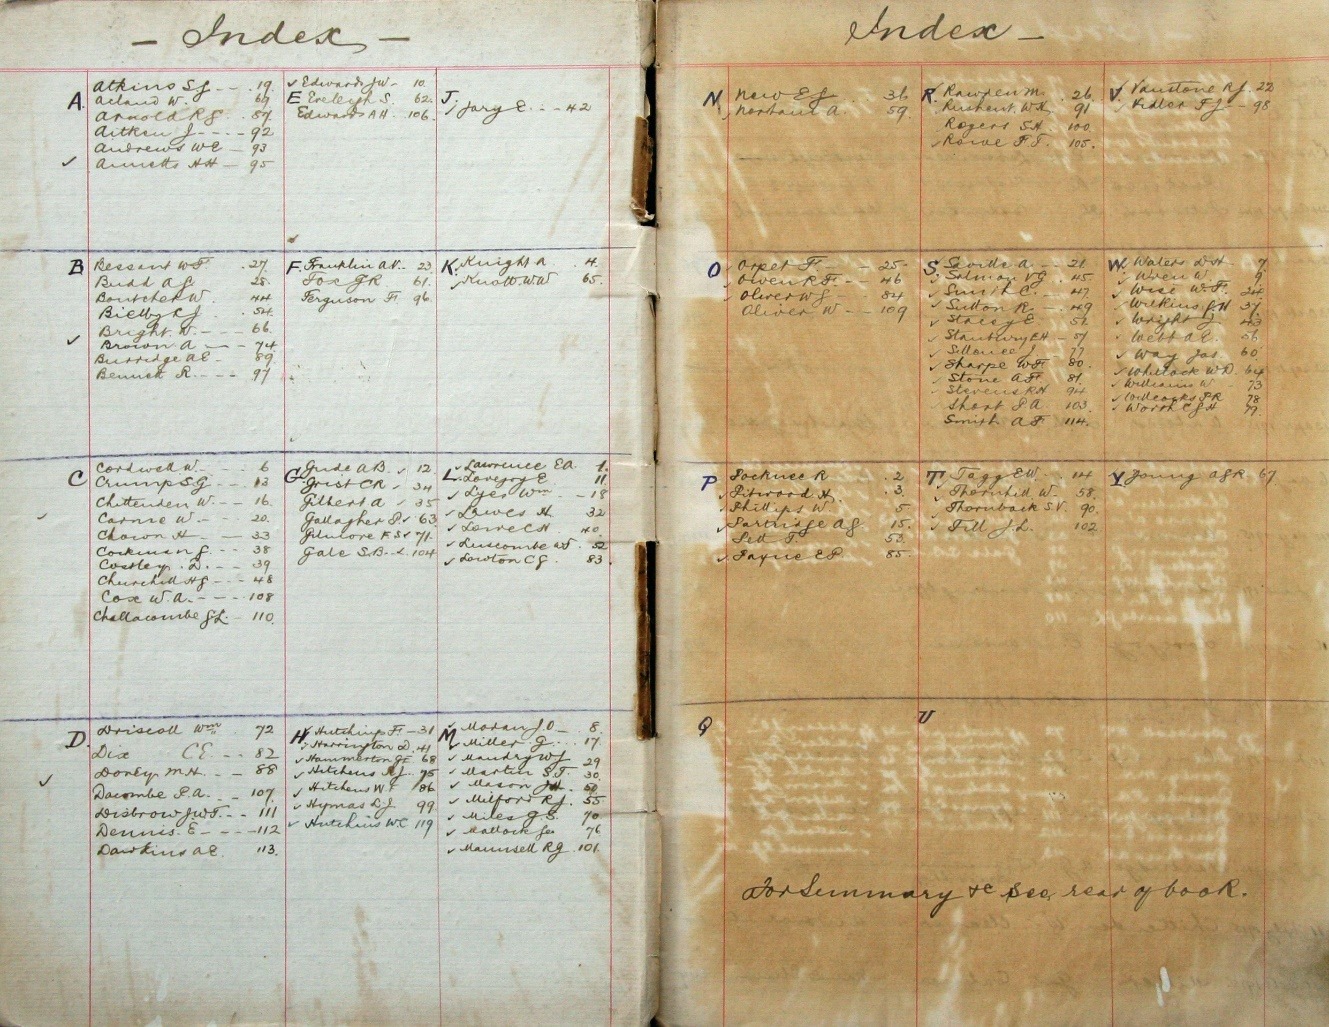 - Index -
A
Atkins S J - 19.
Acland W. 69
Arnold R G 87.
Aitken J - - - 92
Andrews W E - 93
Annetts H H - 95
E
Edwards J W - 10.
Eveleigh S. 62.
Edwards A H. 106.
J
Jary E. - - 42
B
Bessant W F 27.
Budd A G 28.
Boutcher W. 44
Bielby C J 54.
Bright W. - - 66.
Brown A - - 74
Burridge A E - 89
Bennett R - - - 97
F
Franklin A V. - 23.
Fox J R 61.
Ferguson F. 96.
K.
Knight A 4.
Knott W W 65.
C
Cordwell W. - - - 6
Crump S G - - 13
Chittenden W. - 16.
Carnie W. - - 20.
Chown H - - - 33
Corkinan J. - - 38
Costley D. - - 39
Churchill H G - - 48
Cox W. A. - - - 108
Challacombe J L. - 110.
G
Gude A B. 12.
Grist C R 34
Gilbert A 35
Gallagher P. 63.
Gilmore F S 71.
Gale S. B - 104
L
Lawrence E A 1.
Lovejoy E 11
Lyes Wm - 18
Lawes H. 32
Lowe C H 40.
Luscombe W F. 52
Lowton C G. 83.
D.
Driscoll Wm 72
Dix C E. - 82
Dorey M. H. - - 88
Dacombe P. A. - 107.
Disbrow J W F. - - 111
Dennis. E - - - - 112
Dawkins A E. 113.
H
Hutchins F - 31
Harrington D. 41
Hammerton G E 68
Hutchens A J. 75
Hutchens W F 86
Hymas L J 99.
Hutchins W. C 119
M
Moran J O - 8.
Miller G. - 17.
Maudry W J 29
Martin S. T. 30.
Mason J H.
Milford R J. 55
Miles G S. 70
Mattock Jas 76
Maunsell R G. 101.
Index -
N
New E J 36.
Northam A. 59.
R.
Rawden M. - 26.
Rushent W. H. 91
Rogers S. H. 100.
Rowe F. T. 105.
V.
Vanstone R J. 22
Vidler F J - 98
O
Orpet F. - 25.
Owen R. F. - 46
Oliver W J - 84
Oliver W - - 109
S.
Seville A - 21.
Salmon V G 45
Smith C. - 47
Sutton R. - 49
Stacey E. 51.
Stanbury E H - 57
Sillence J. - 77
Sharpe W F. 80.
Stone A F. 81.
Stevens R H 94
Short P. A. 103.
Smith A F. 114.
W.
Waters D. H. 7.
Wren W. 9.
Wise W. F. 24
Wilkins J. H 37
Wright J 43
Webb A E. 56
Way Jas. 60.
Whitlock W D. 64
Williams W. 73
Willcocks P R 78
Worth C G H 79.
P
Pocknee R 2
Pitwood H. 3.
Phillips W 5
Partridge A G 15.
Pett T. 53.
Payne E P. 85.
T.
Tagg E W. - 14
Thornhill W - 58.
Thornback S V. 90.
Till J. L. 102.
Y
Young A G R 67
Q
U
For Summary &c see rear of book.